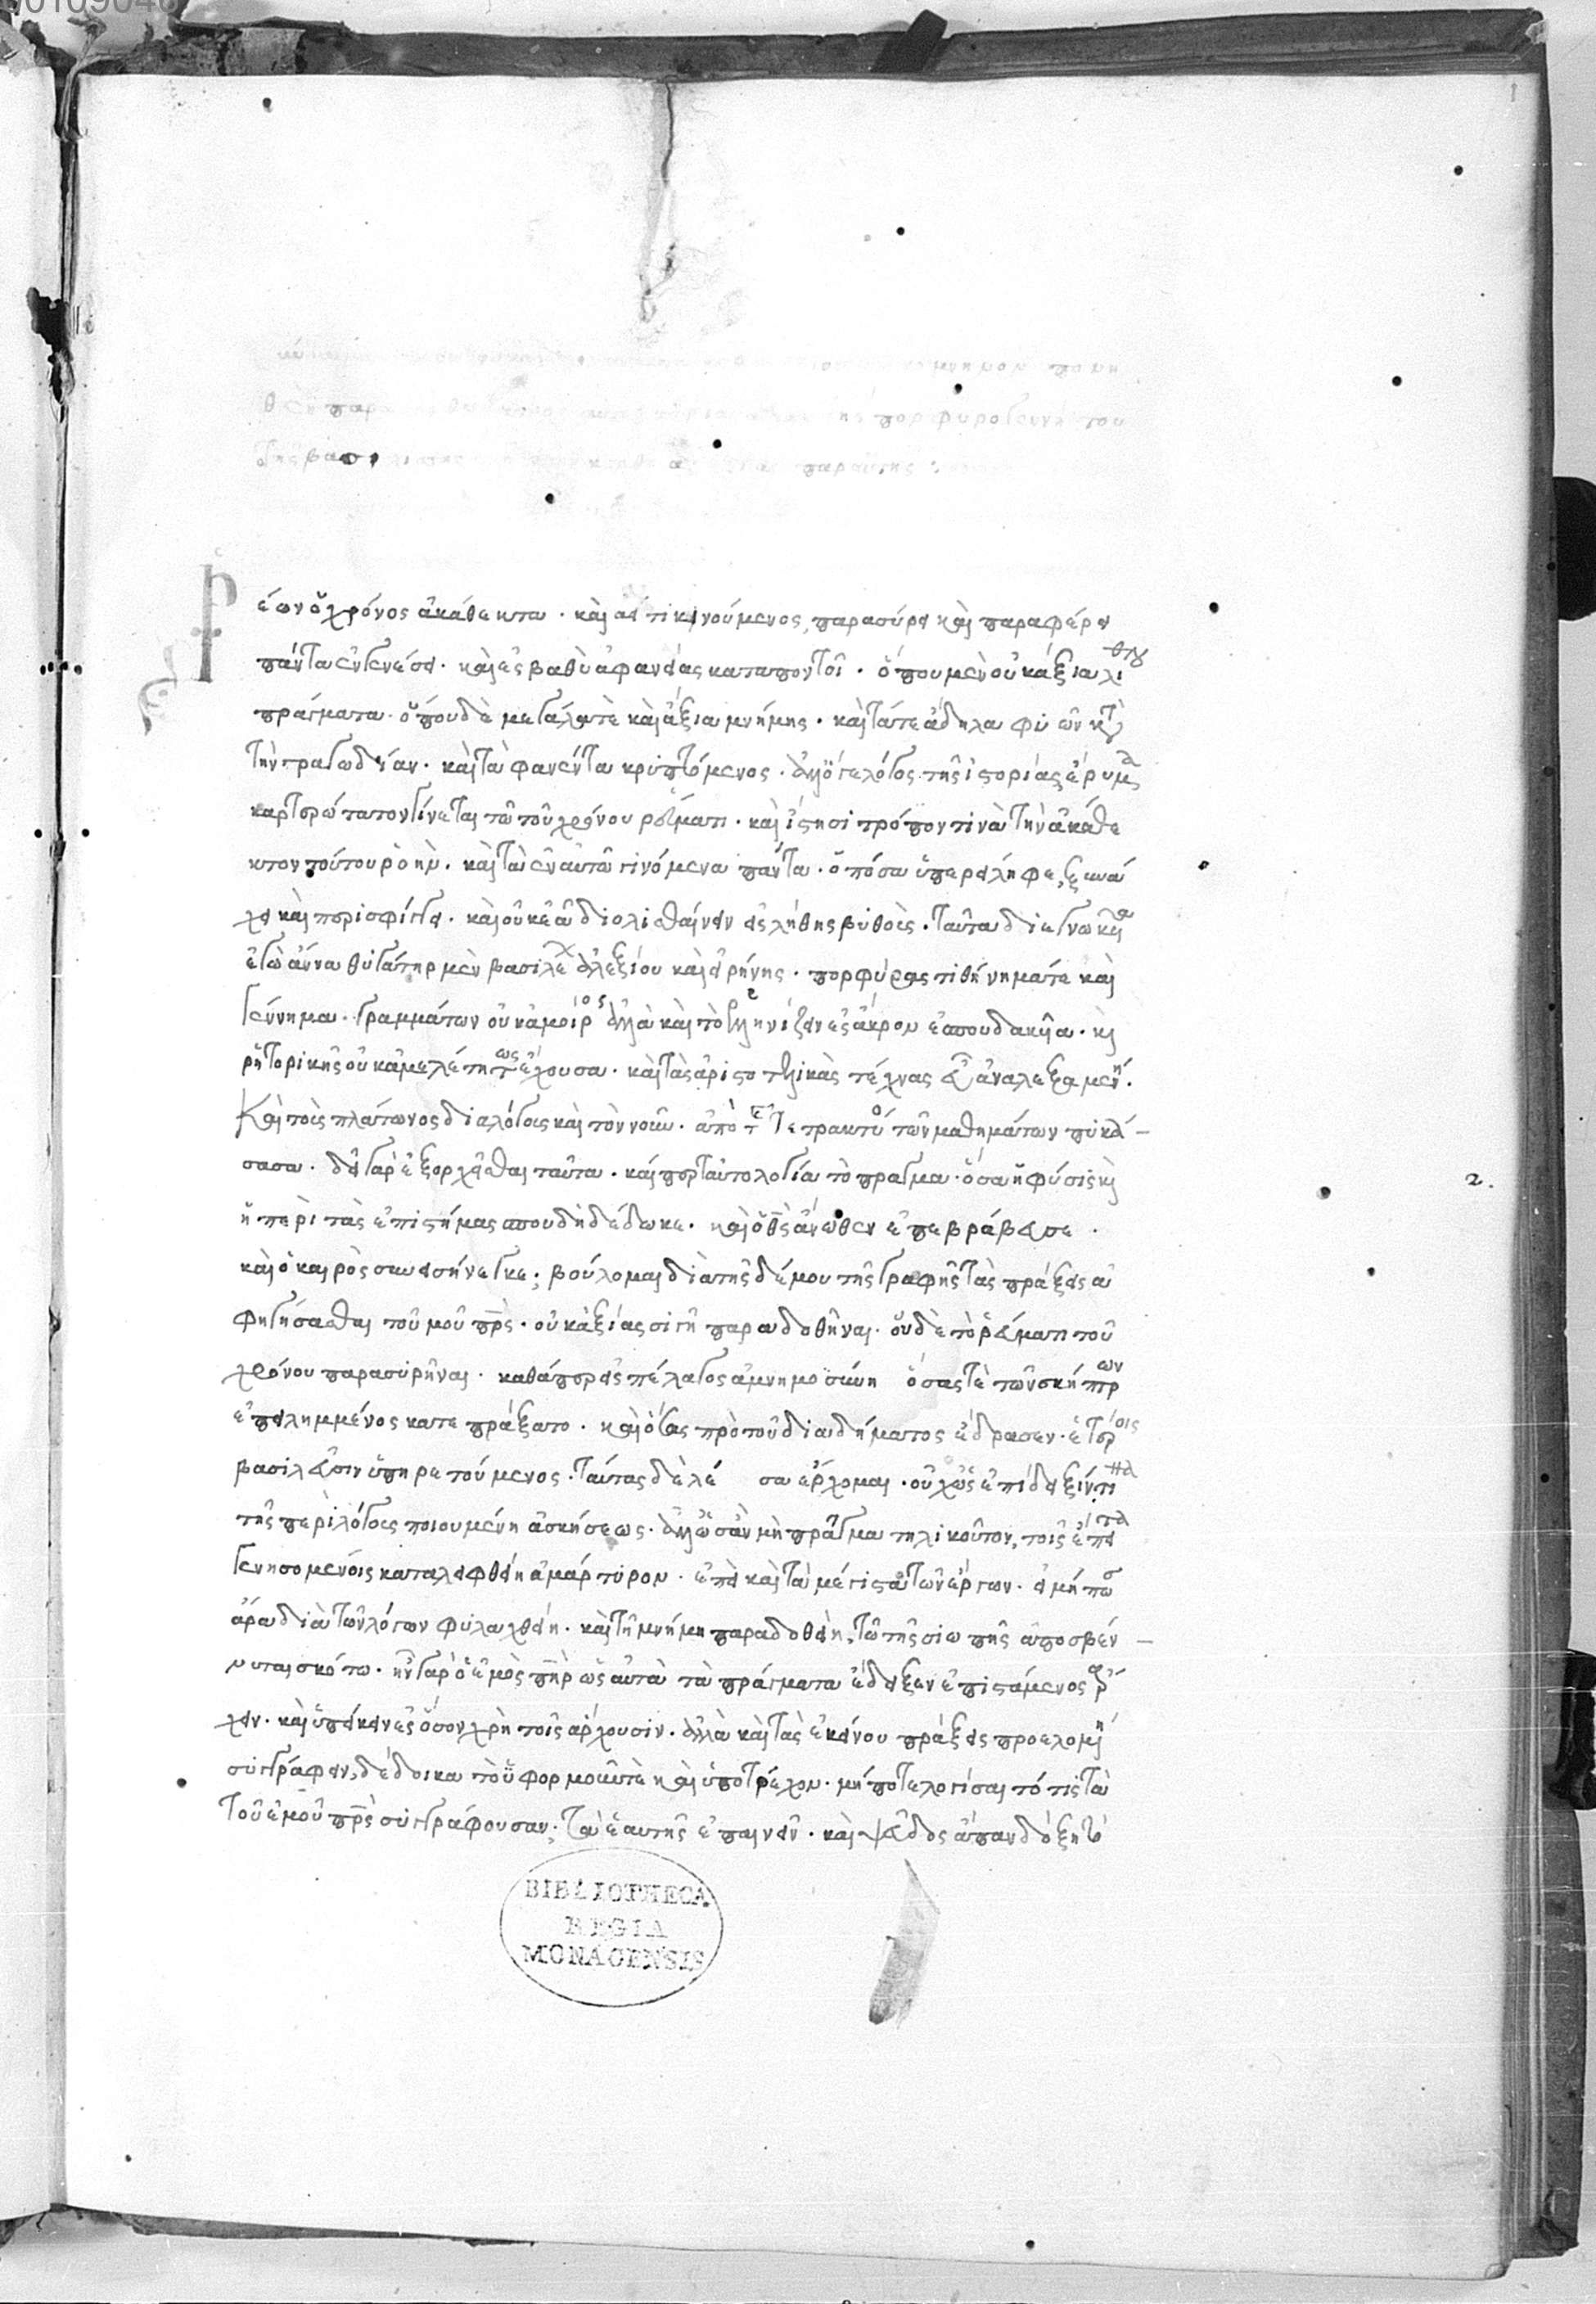 ῥ
έων ὁ χρόνος ἀκάθεκτα · καὶ ἀεί τι κινούμενος, παρασύρει καὶ παραφέρει
πάντα ἐν γενέσει · καὶ ἐς βαθὺ ἀφανείας καταποντοῖ · ὅπου μὲν οὐκ ἄξια λόγου
πράγματα · ὅπου δὲ μεγάλά τὲ καὶ ἄξια μνήμης · καὶ τά τε ἄδηλα φύων κατὰ
τὴν τραγωδίαν · καὶ τὰ φανέντα κρυπτόμενος · ἀλλ' ὅ γε λόγος τῆς ἱστορίας ἔρυμα
καρτερώτατον γίνεται τῶ τοῦ χρόνου ρεύματι · καὶ ἵστησι τρόπον τινὰ τὴν ἀκάθε
κτον τούτου ῥοήν · καὶ τὰ ἐν αὐτῶ γινόμενα πάντα · ὁπόσα ὑπερείληφε, ξυνέ
χει καὶ περισφίγγει · καὶ οὐκ ἐᾶ διολισθαίνειν εἰς λήθης βυθούς · ταῦτα διεγνωκυῖα
ἐγὼ ἄννα θυγάτηρ μὲν βασιλέων ἀλεξίου καὶ εἰρήνης · πορφύρας τιθήνημά τε καὶ
γέννημα · γραμμάτων οὐκ ἄμοιρος ἀλλὰ καὶ τὸ ἑλληνίζειν ἐς ἄκρον ἐσπουδακυῖα · καὶ
ῥητορικῆς οὐκ ἀμελετήτως ἔχουσα · καὶ τὰς ἀριστοτελικὰς τέχνας εὖ ἀναλεξαμένη ·
Καὶ τοὺς πλάτωνος διαλόγους καὶ τὸν νοῦν · ἀπὸ τῆς τετρακτύος τῶν μαθημάτων πυκά-
σασα · δεῖ γὰρ ἐξορχεῖσθαι ταῦτα · καὶ περιαυτολογία τὸ πρᾶγμα · ὅσα ἡ φύσις καὶ
ἡ περὶ τὰς ἐπιστήμας σπουδὴ δέδωκε · καὶ ὁ θς ἄνωθεν ἐπεβράβευσε ·
καὶ ὁ καιρὸς συνεισήνεγκε · βούλομαι διὰ τῆς δέ μου τῆς γραφῆς τὰς πράξεις ἀ
φηγήσασθαι τοῦ μοῦ πρς · οὐκ ἀξίας σιγῆ παραδοθῆναι · οὐδὲ τὸ ῥεύματι τοῦ
χρόνου παρασυρῆναι · καθάπερ εἰς πέλαγος ἀμνημοσύνη ὅσας τὲ τῶν σκήπτρων
ἐπειλημμένος κατεπράξατο · καὶ ὅσας πρὸ τοῦ διαδήματος ἔδρασεν · ἑτέροις
βασιλεῦσιν ὑπηρετούμενος · ταύτας δὲ λέ σα ἔρχομαι · οὐχ ὡς ἐπίδειξίν τινα
τῆς περὶ λόγους ποιουμένη ἀσκήσεως · ἀλλ' ὡς ἂν μὴ πρᾶγμα τηλικοῦτον, τοῖς ἔπειτα
γενησομένοις καταλειφθείη ἀμάρτυρον · ἐπεὶ καὶ τὰ μέγιστα τῶν ἔργων · εἰ μή πως
ἄρα διὰ τῶν λόγων φυλαχθείη · καὶ τῆ μνήμη παραδοθείη, τῶ τῆς σιωπῆς ἀποσβέν-
νυται σκότω · ἦν γὰρ ὁ ἐμὸς πηρ ὡς αὐτὰ τὰ πράγματα ἔδειξεν ἐπιστάμενος ἄρ
χειν · καὶ ὑπείκειν ἐς ὅσον χρὴ τοῖς ἄρχουσιν · ἀλλὰ καὶ τὰς ἐκείνου πράξεις προελομένη
συγγράφειν, δέδοικα τὸ ὑφορμοῦν τὲ καὶ ὑποτρέχον · μή ποτε λογίσαιτό τις τὰ
τοῦ ἐμοῦ πρς συγγράφουσαν · τὰ ἑαυτῆς ἐπαινεῖν · καὶ ψεῦδος ἅπαν δόξη τὸ
2.
BIBLIOTHECA
REGIA
MONACENSIS